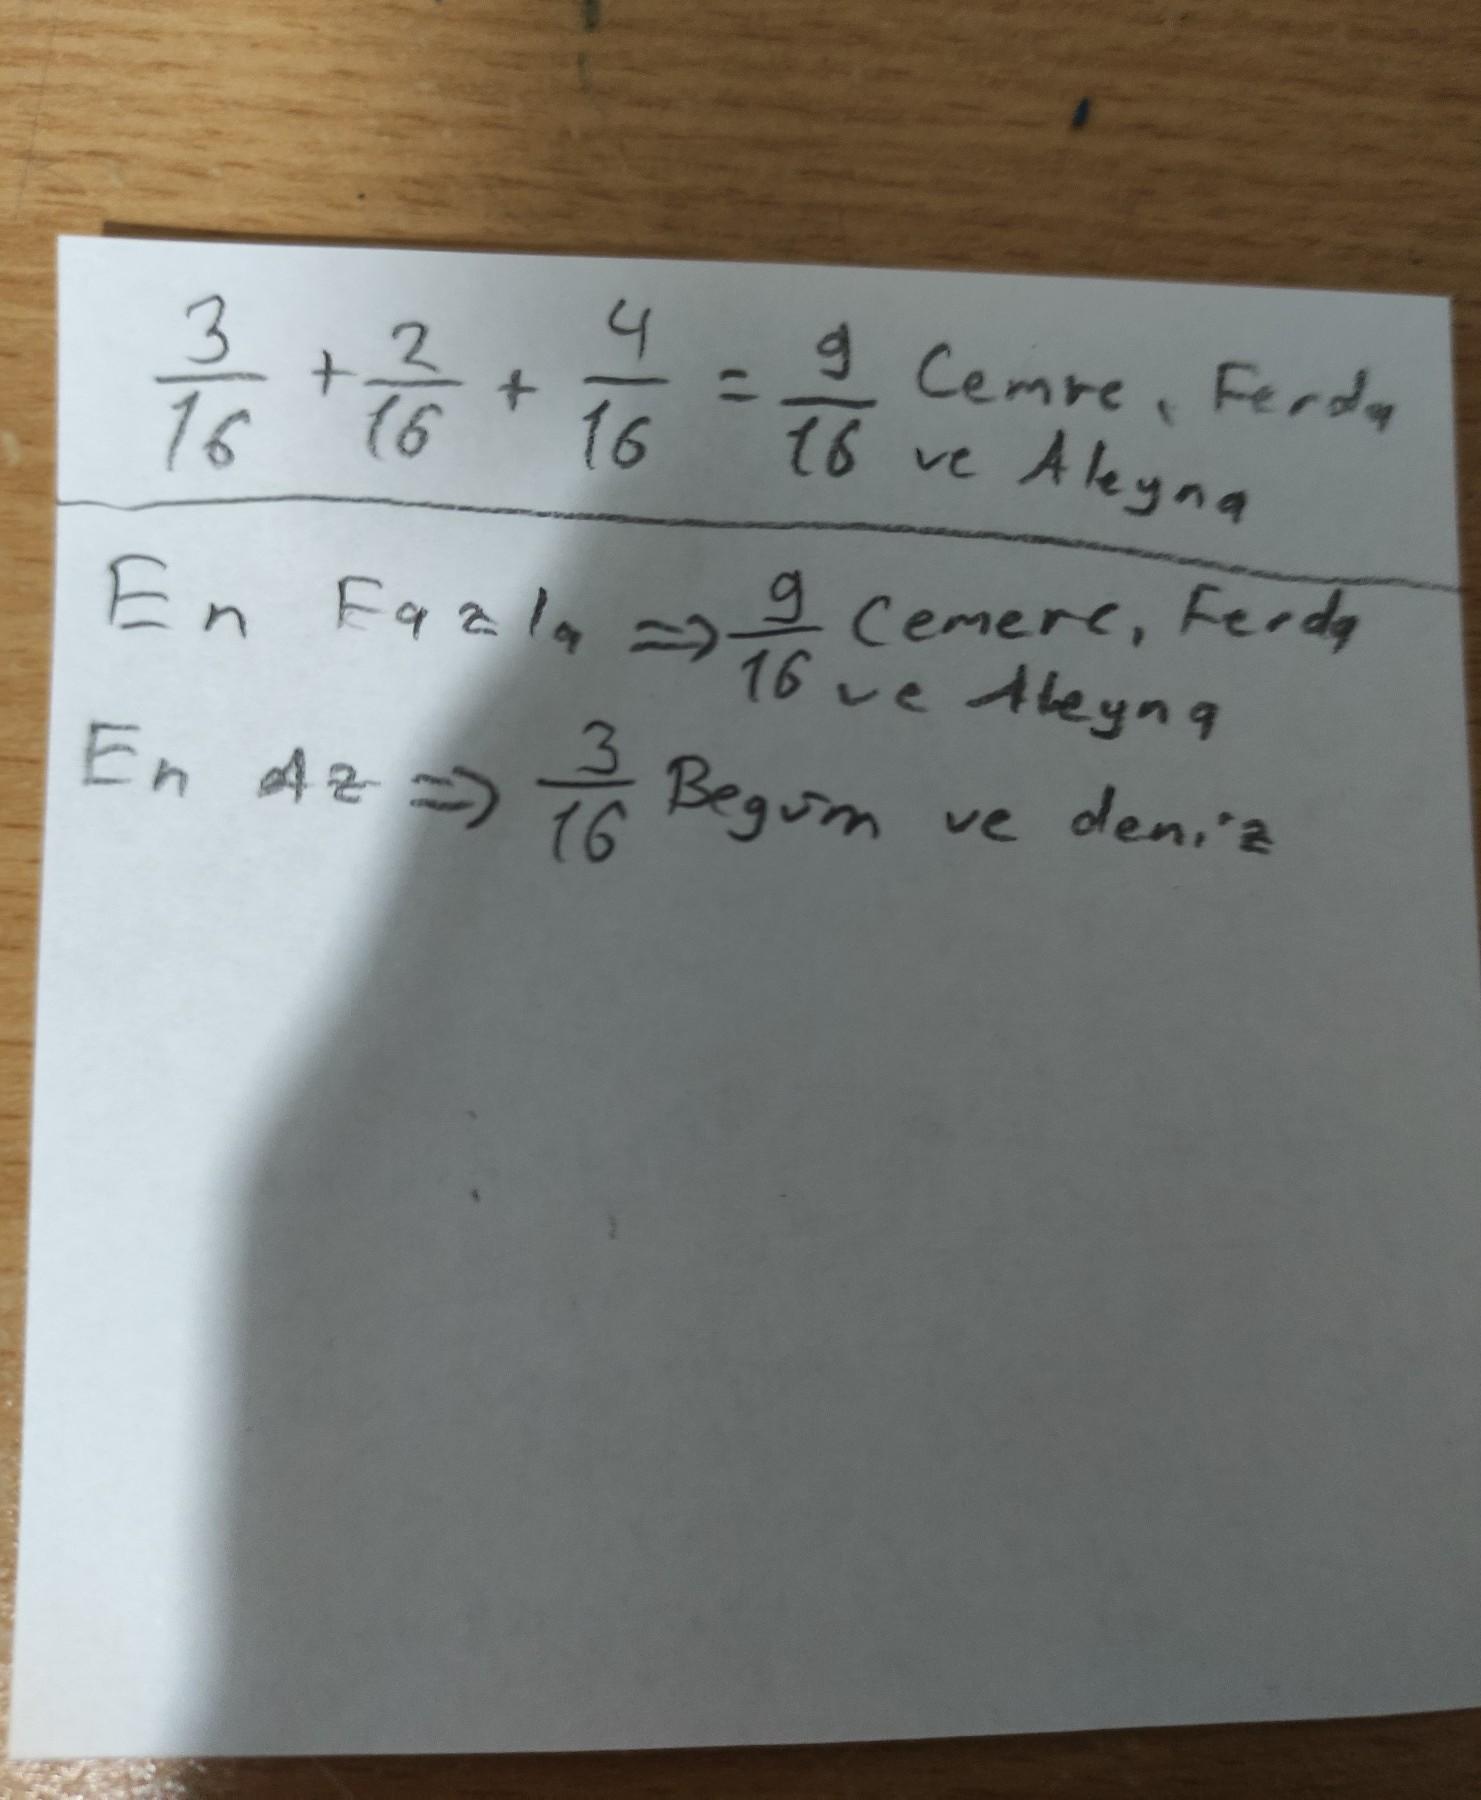 3/16 + 2/16 + 4/16 = 9/16 Cemre, Ferda
ve Aleyna
En Fazla ⇒ 9/16 Cemere, Ferda
ve Aleyna
En Az ⇒ 3/16 Begüm ve deniz